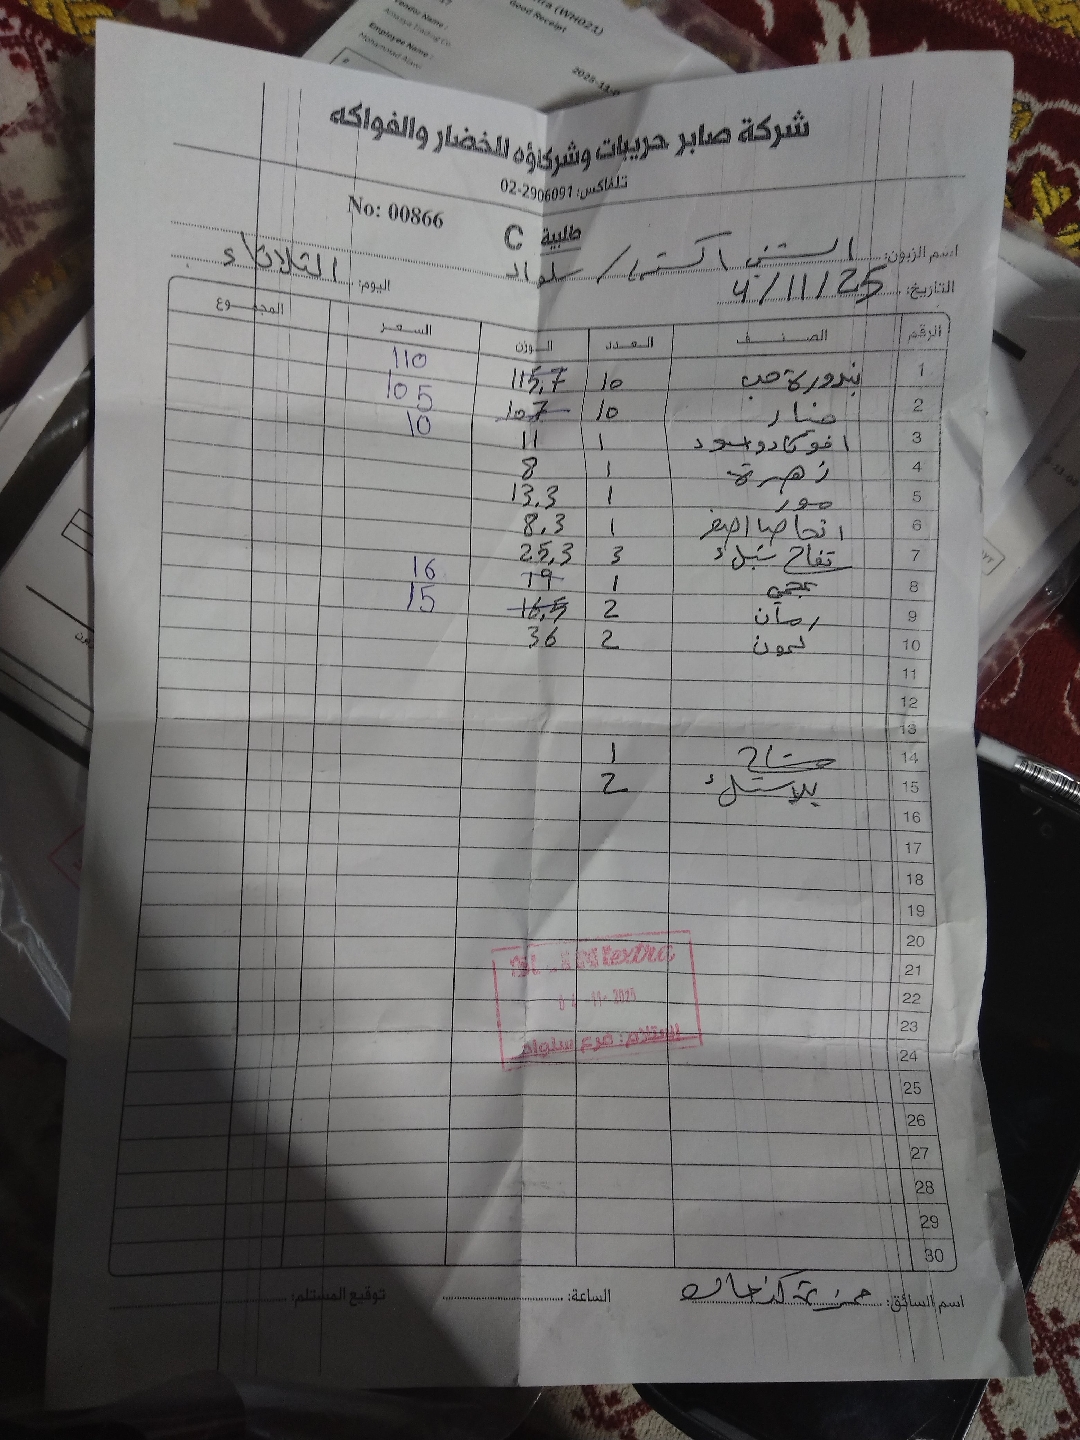 (WH021)
Good Receipt
Vendor Name :
Employee Name :
Mohammad Alawi
شركة صابر حريبات وشركاؤه للخضار والفواكه
تلفاكس: 02-2906091
No: 00866
طلبية C
اسم الزبون: الشني اكسترا / سلواد
اليوم: الثلاثاء
التاريخ: 4/11/25
الرقم الصنف العدد الوزن السعر المجموع
1 بندورة حب 10 115,7 110
2 خيار 10 107 105
3 افوكادو اسود 1 11 10
4 زهرة 1 8
5 موز 1 13.3
6 انجاص اصفر 1 8.3
7 تفاح 3 25,3
8 1 19 16
9 رمان 2 16,5 15
10 ليمون 2 36
11
12
13
14 مشتاح 1
15 بلاستيك 2
16
17
18
19
20
21
22
23
24
25
26
27
28
29
30
extra
2025
استلام: فرع سلواد
اسم السائق: حمزة
الساعة:
توقيع المستلم: